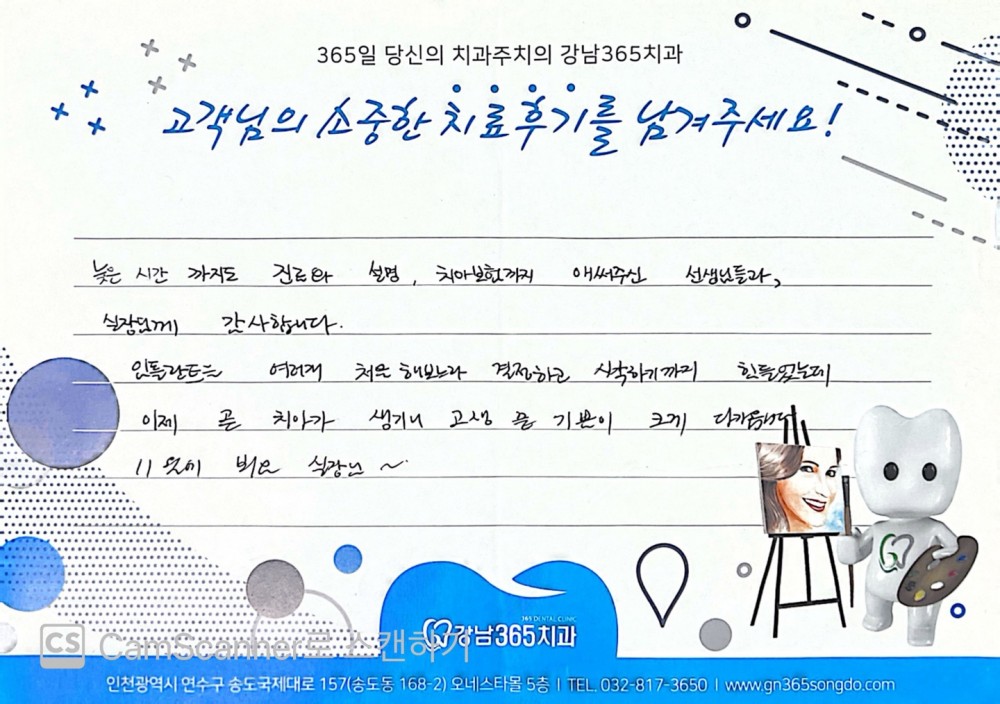 365일 당신의 치과주치의 강남365치과
고객님의 소중한 치료후기를 남겨주세요!
늦은 시간 까지도 진료와 설명, 치아보험까지 애써주신 선생님들과,
실장님께 감사합니다.
임플란트는 여러저 처음 해보느라 결정하고 시작하기까지 힘들었는데
이제 곧 치아가 생기니 고생 끝 기분이 크게 다가옵니다
11월에 봬요 실장님 ~
365 DENTAL CLINIC
강남365치과
CS CamScanner로 스캔하기
인천광역시 연수구 송도국제대로 157(송도동 168-2) 오네스타몰 5층 | TEL. 032-817-3650 | www.gn365songdo.com